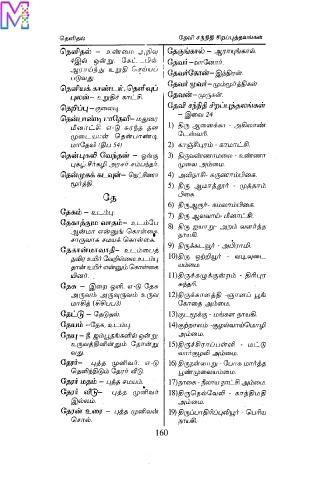 தெளிதல்
தேவி சந்நிதி சிறப்புத்தலங்கள்
தெளிதல் – உண்மை அறிவு
4இல் ஒன்று. கேட்டபின்
ஆராய்ந்து உறுதி செய்யப்
படுவது.
தெளியக் காண்டல், தெளிவுப்
புலன் – உறுதிக் காட்சி.
தெறிப்பு – குறைவு
தென்பாண்டி மாதேவி – மதுரை
மீனாட்சி. எ-டு கரந்த தன
முடையாள் தென்பாண்டி
மாதேவி (திப 54)
தென்புகலி வேந்தன் – ஓங்கு
புகழ்ச் சீர்கழி அரசர் சம்பந்தர்.
தென்முகக் கடவுள் – தெட்சிணா
மூர்த்தி.
தே
தேகம் – உடம்பு
தேகாத்தும வாதம் – உடம்பே
ஆன்மா என்னுங் கொள்கை.
சாருவாக சமயக் கொள்கை.
தேகான்மாவாதி – உடம்பைத்
தவிர உயிர் வேறில்லை. உடம்பு
தான் உயிர் என்னும் கொள்கை
யினர்.
தேசு – இறை ஒளி. எ-டு தேசு
அருவம் அருவுருவம் உருவ
மாகித் (சிசிபப3)
தேட்டு – தேடுதல்.
தேயம் – தேசு, உடம்பு
தேயு – நீ ஐம்பூதங்களில் ஒன்று.
உருவத்தினின்றும் தோன்று
வது.
தேரர் – புத்த முனிவர். எ-டு
தெளிந்திடும் தேரர் வீடு
தேரர் மதம் – புத்த சமயம்.
தேரர் வீடு – புத்த முனிவர்
இல்லம்.
தேரன் உரை – புத்த முனிவன்
சொல்.
தேருங்கால் – ஆராயுங்கால்.
தேவர் – வானோர்.
தேவர்கோன் – இந்திரன்.
தேவர் மூவர் – மும்மூர்த்திகள்
தேவன் – முருகன்.
தேவி சந்நிதி சிறப்புத்தலங்கள்
– இவை 24
1) திரு ஆனைக்கா – அகிலாண்
டேஸ்வரி.
2) காஞ்சிபுரம் – காமாட்சி.
3) திருவண்ணாமலை – உண்ணா
முலை அம்மை.
4) அவிநாசி – கருணாம்பிகை.
5) திரு ஆமாத்தூர் – முத்தாம்
பிகை.
6) திருஆரூர் – கமலாம்பிகை.
7) திரு ஆலவாய் – மீனாட்சி.
8) திரு ஐயாறு அறம் வளர்த்த
நாயகி.
9) திருக்கடவூர் – அபிராமி.
10) திரு ஒற்றியூர் – வடிவுடை
யம்மை
11) திருக்கழுக்குன்றம் – திரிபுர
சுந்தரி.
12) திருக்காளத்தி – ஞானப் பூங்
கோதை அம்மை,
13) குடமூக்கு – மங்கள நாயகி.
14) குற்றாலம் – குழல்வாய்மொழி
அம்மை.
15) திருச்சிராப்பள்ளி – மட்டு
வார்குழலி அம்மை.
16) திருநள்ளாறு – போக மார்த்த
பூண்முலையம்மை.
17) நாகை – நீலாய நாட்சி அம்மை.
18) திருநெல்வேலி – காந்திமதி
அம்மை.
19) திருப்பாதிரிப்புலியூர் – பெரிய
நாயகி.
160